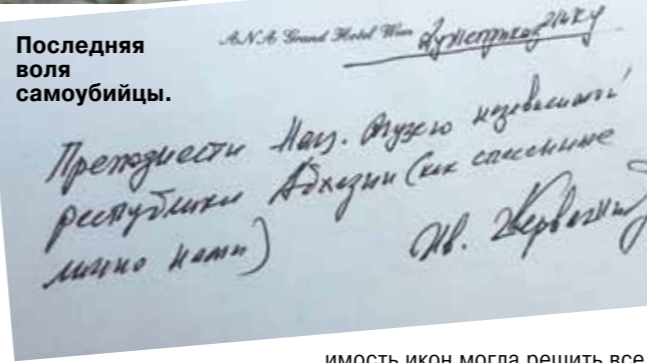 Последняя
воля
самоубийцы.
ANA Grand Hotel Wien
Душеприказчику
Преподнести Нац. Музею независимой
республики Абхазии (как спасенные
лично нами)
Ив.
имость икон могла решить все